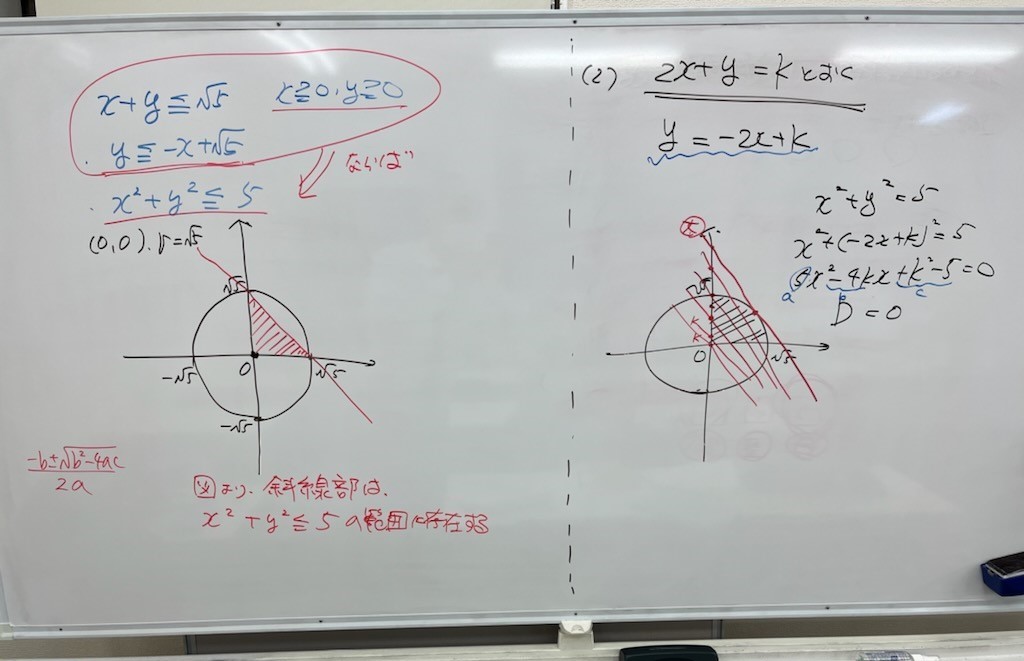 x+y≦√5 x≧0, y≧0
y≦-x+√5
ならば
x²+y²≦5
(0,0), r=√5
√5
-√5
0
√5
-√5
-b±√b²-4ac
2a
図より、斜線部は、
x²+y²≦5の範囲に存在する
(2) 2x+y=kとおく
y=-2x+k
x²+y²=5
x²+(-2x+k)²=5
5x²-4kx+k²-5=0
a b c
D=0
k
√5
k
k
0
√5